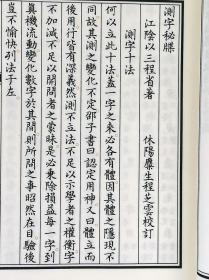 測字秘牒
江陰以三程省著
休陽麋生程芝雲校訂
測字十法
何以立此十法蓋一字之來必各有體因其體之隱現不
同故其測之變化不定邵子書曰認定用神又曰體立而
後用行皆有深義然測不立法不足以示學者之權衡字
不加減不足以開聞者之蒙昧是必乘除損益每一字到
真機流動變化數字於其間則所問之事昭然在目驗後
豈不愉快列法于左